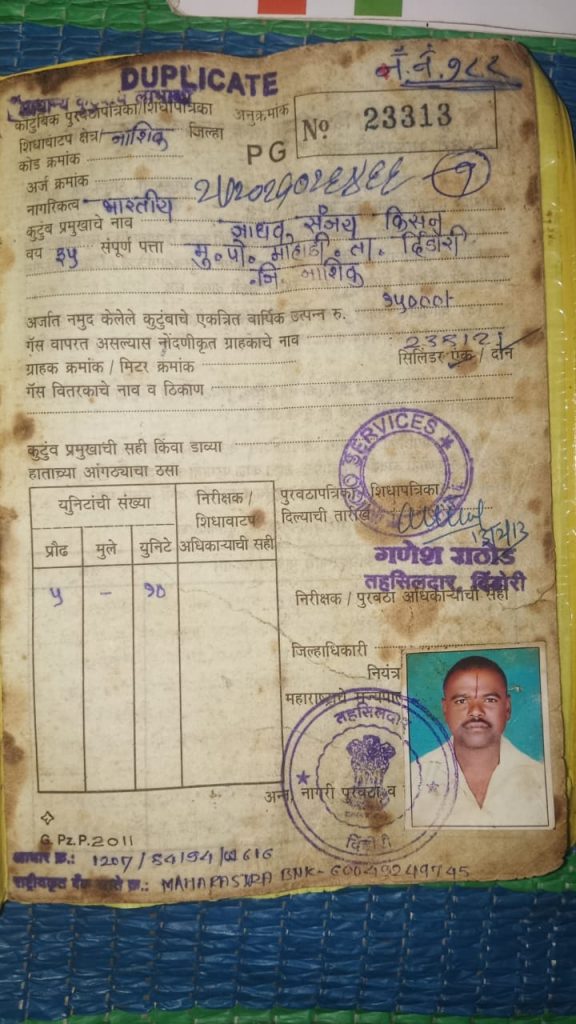 DUPLICATE
नं. नं. १८८
कौटुंबिक पुरवठापत्रिका/शिधापत्रिका अनुक्रमांक
शिधावाटप क्षेत्र/ नाशिक जिल्हा
Nº 23313
कोड क्रमांक
PG
अर्ज क्रमांक
नागरिकत्व भारतीय
कुटुंब प्रमुखाचे नाव जाधव संजय किसन
वय ३५ संपूर्ण पत्ता मु.पो. मोहाडी. ता. दिंडोरी
जि. नाशिक
अर्जात नमुद केलेले कुटुंबाचे एकत्रित वार्षिक उत्पन्न रु. १५०००।
गॅस वापरत असल्यास नोंदणीकृत ग्राहकाचे नाव
ग्राहक क्रमांक / मिटर क्रमांक सिलिंडर एक / दोन
गॅस वितरकाचे नाव व ठिकाण
कुटुंब प्रमुखांची सही किंवा डाव्या
हाताच्या आंगठ्याचा ठसा
SERVICES
युनिटांची संख्या
निरीक्षक /
शिधावाटप
अधिकाऱ्याची सही
प्रौढ मुले युनिटे
५ – १०
पुरवठापत्रिका/ शिधापत्रिका
दिल्याची तारीख
गणेश राठोड
तहसिलदार, दिंडोरी
निरीक्षक / पुरवठा अधिकाऱ्याची सही
जिल्हाधिकारी
नियंत्र
महाराष्ट्राचे
तहसिलदार
अन्न, नागरी पुरवठा व
दिंडोरी
G.Pz.P.2011
आधार क्र.: 1207/54194/01616
राष्ट्रीयकृत बँक खाते क्र.: MAHARASTRA BNK- 60049249745